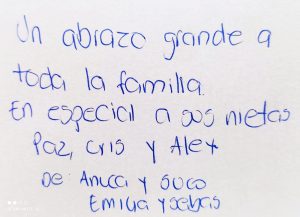 Un abrazo grande a
toda la familia.
En especial a sus nietas
Paz, Cris y Alex
De: Anuca y Suco
Emilia y sebas